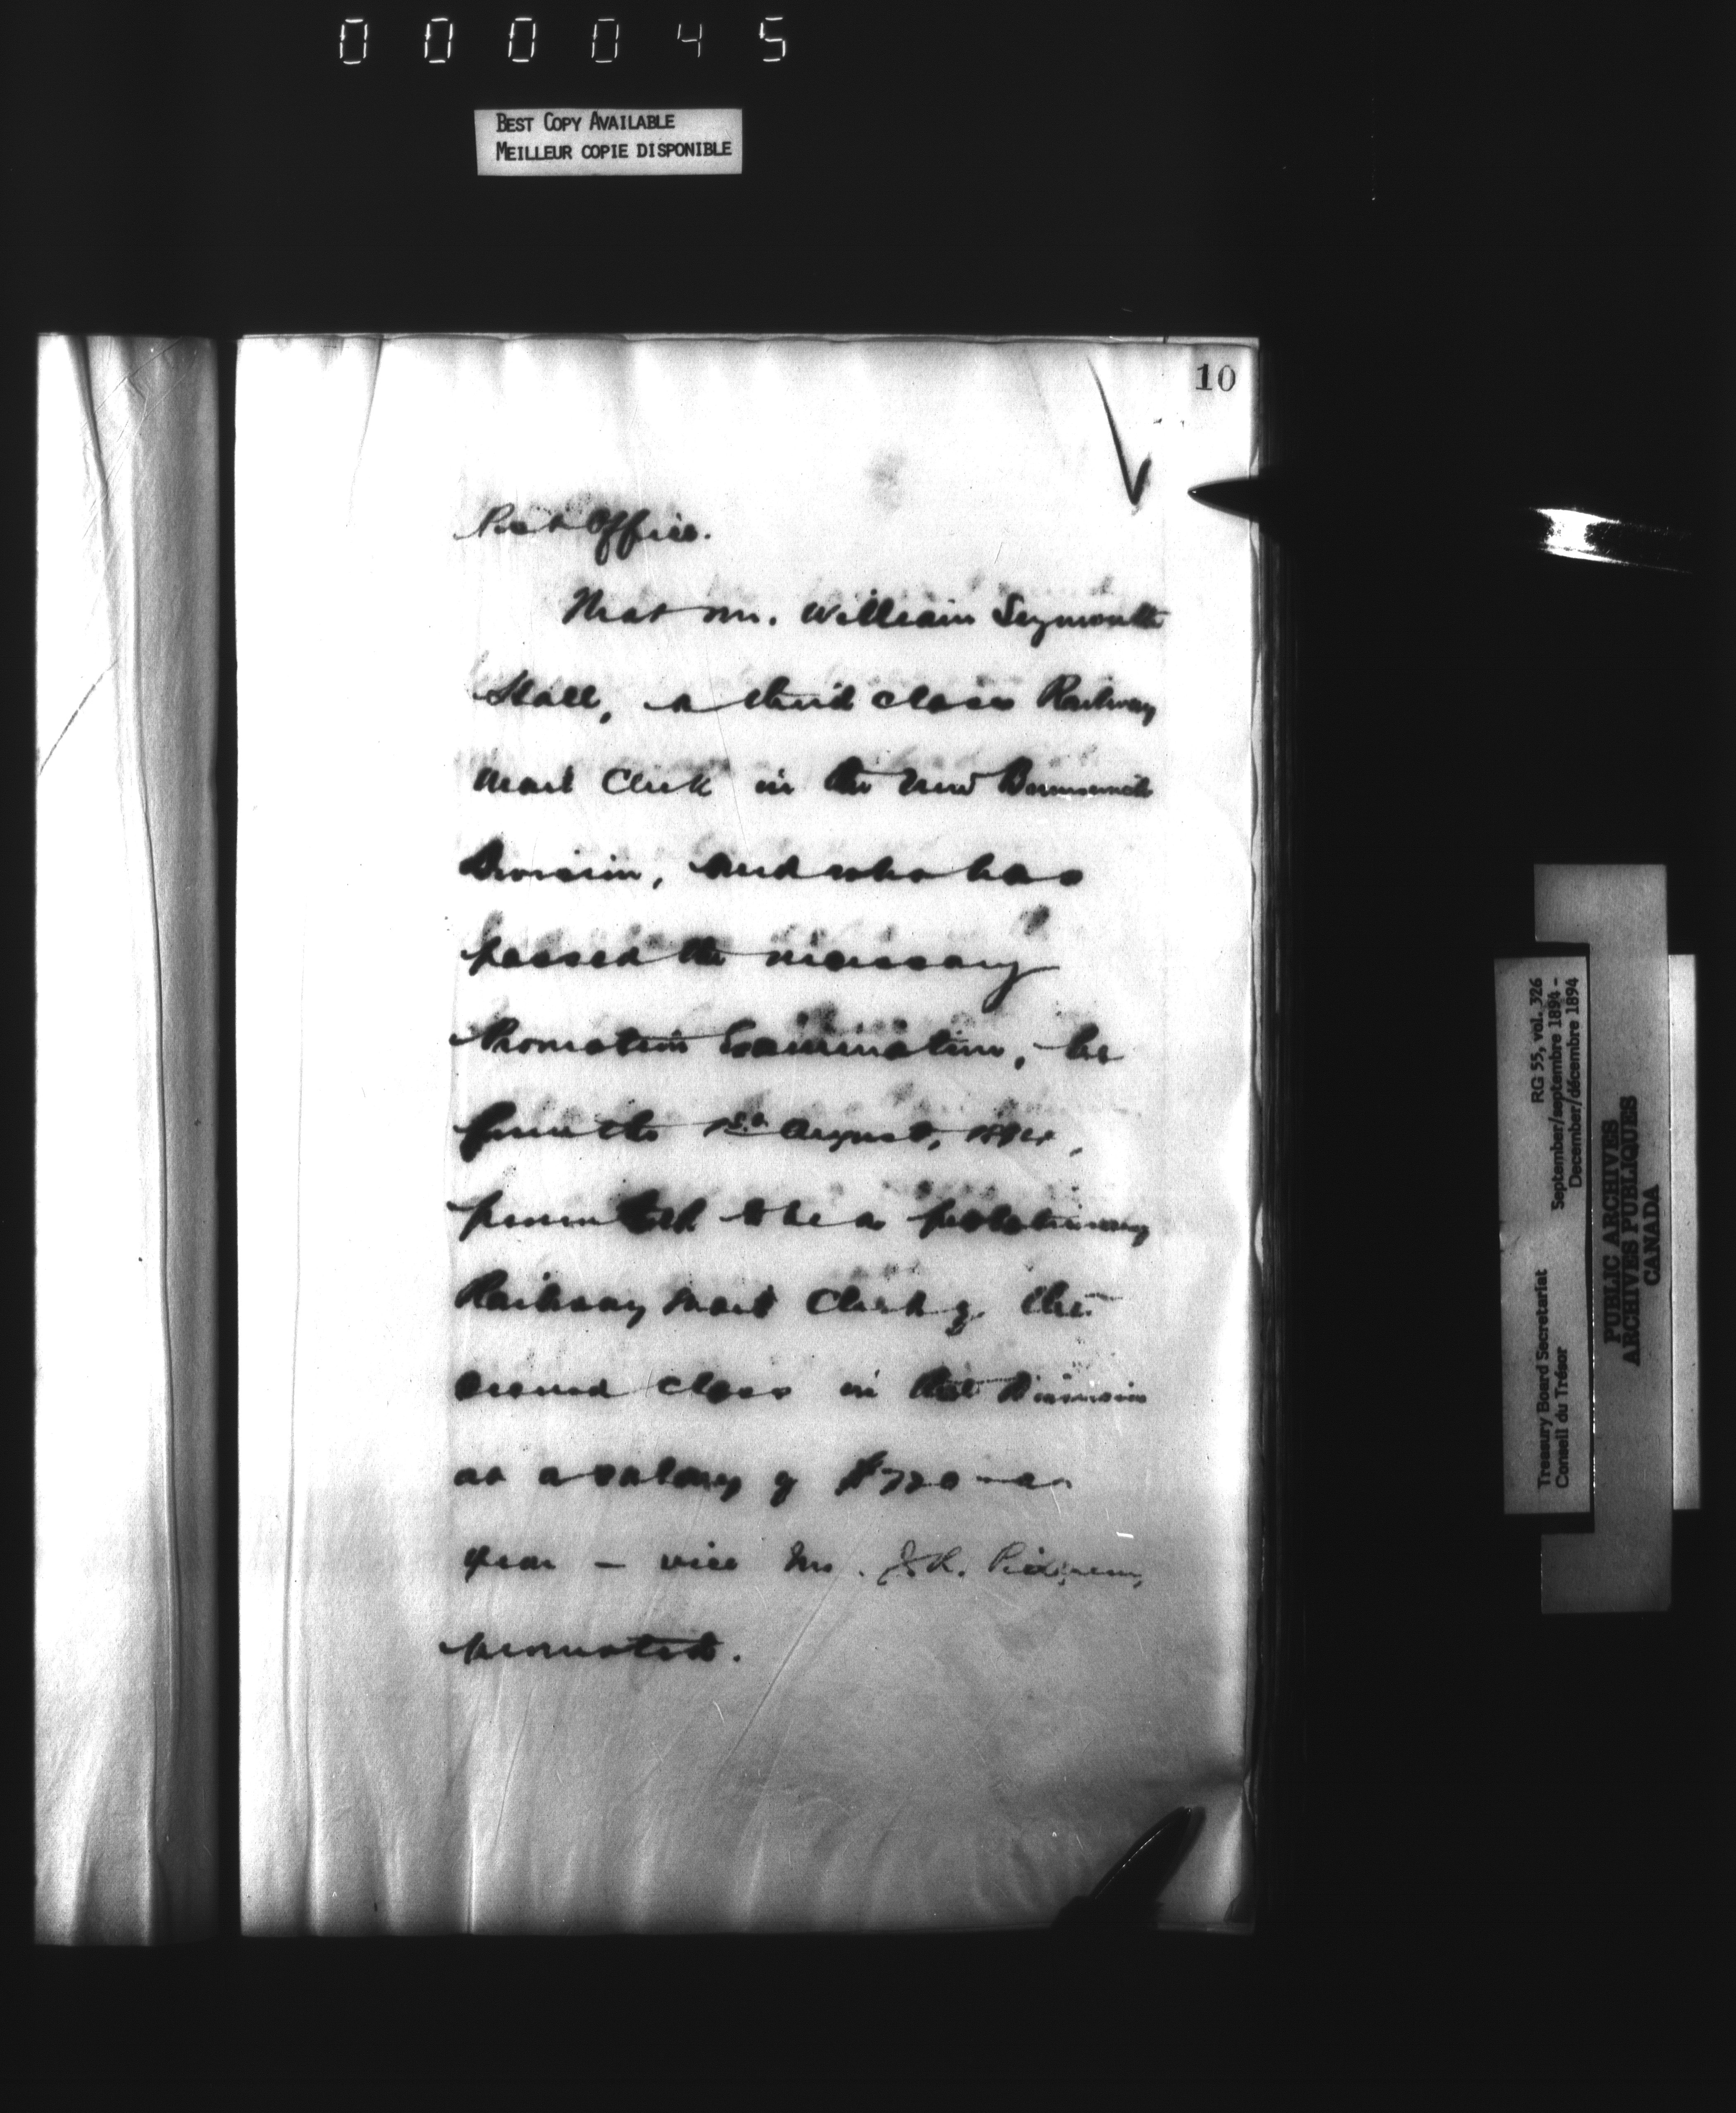 000045
BEST COPY AVAILABLE
MEILLEUR COPIE DISPONIBLE
10
Post Office.
That Mr. William Seymour
Hall, a third class Railway
Mail Clerk in the New Brunswick
Division, and who has
passed the necessary
Promotion Examination, be
from the 1st August, 1894,
promoted to be a probationary
Railway Mail Clerk of the
second class in that Division
at a salary of $720 a
year – vice Mr. J.R.
promoted.
Treasury Board Secretariat RG 55, vol. 326
Conseil du Trésor September/septembre 1894 -
December/décembre 1894
PUBLIC ARCHIVES
ARCHIVES PUBLIQUES
CANADA